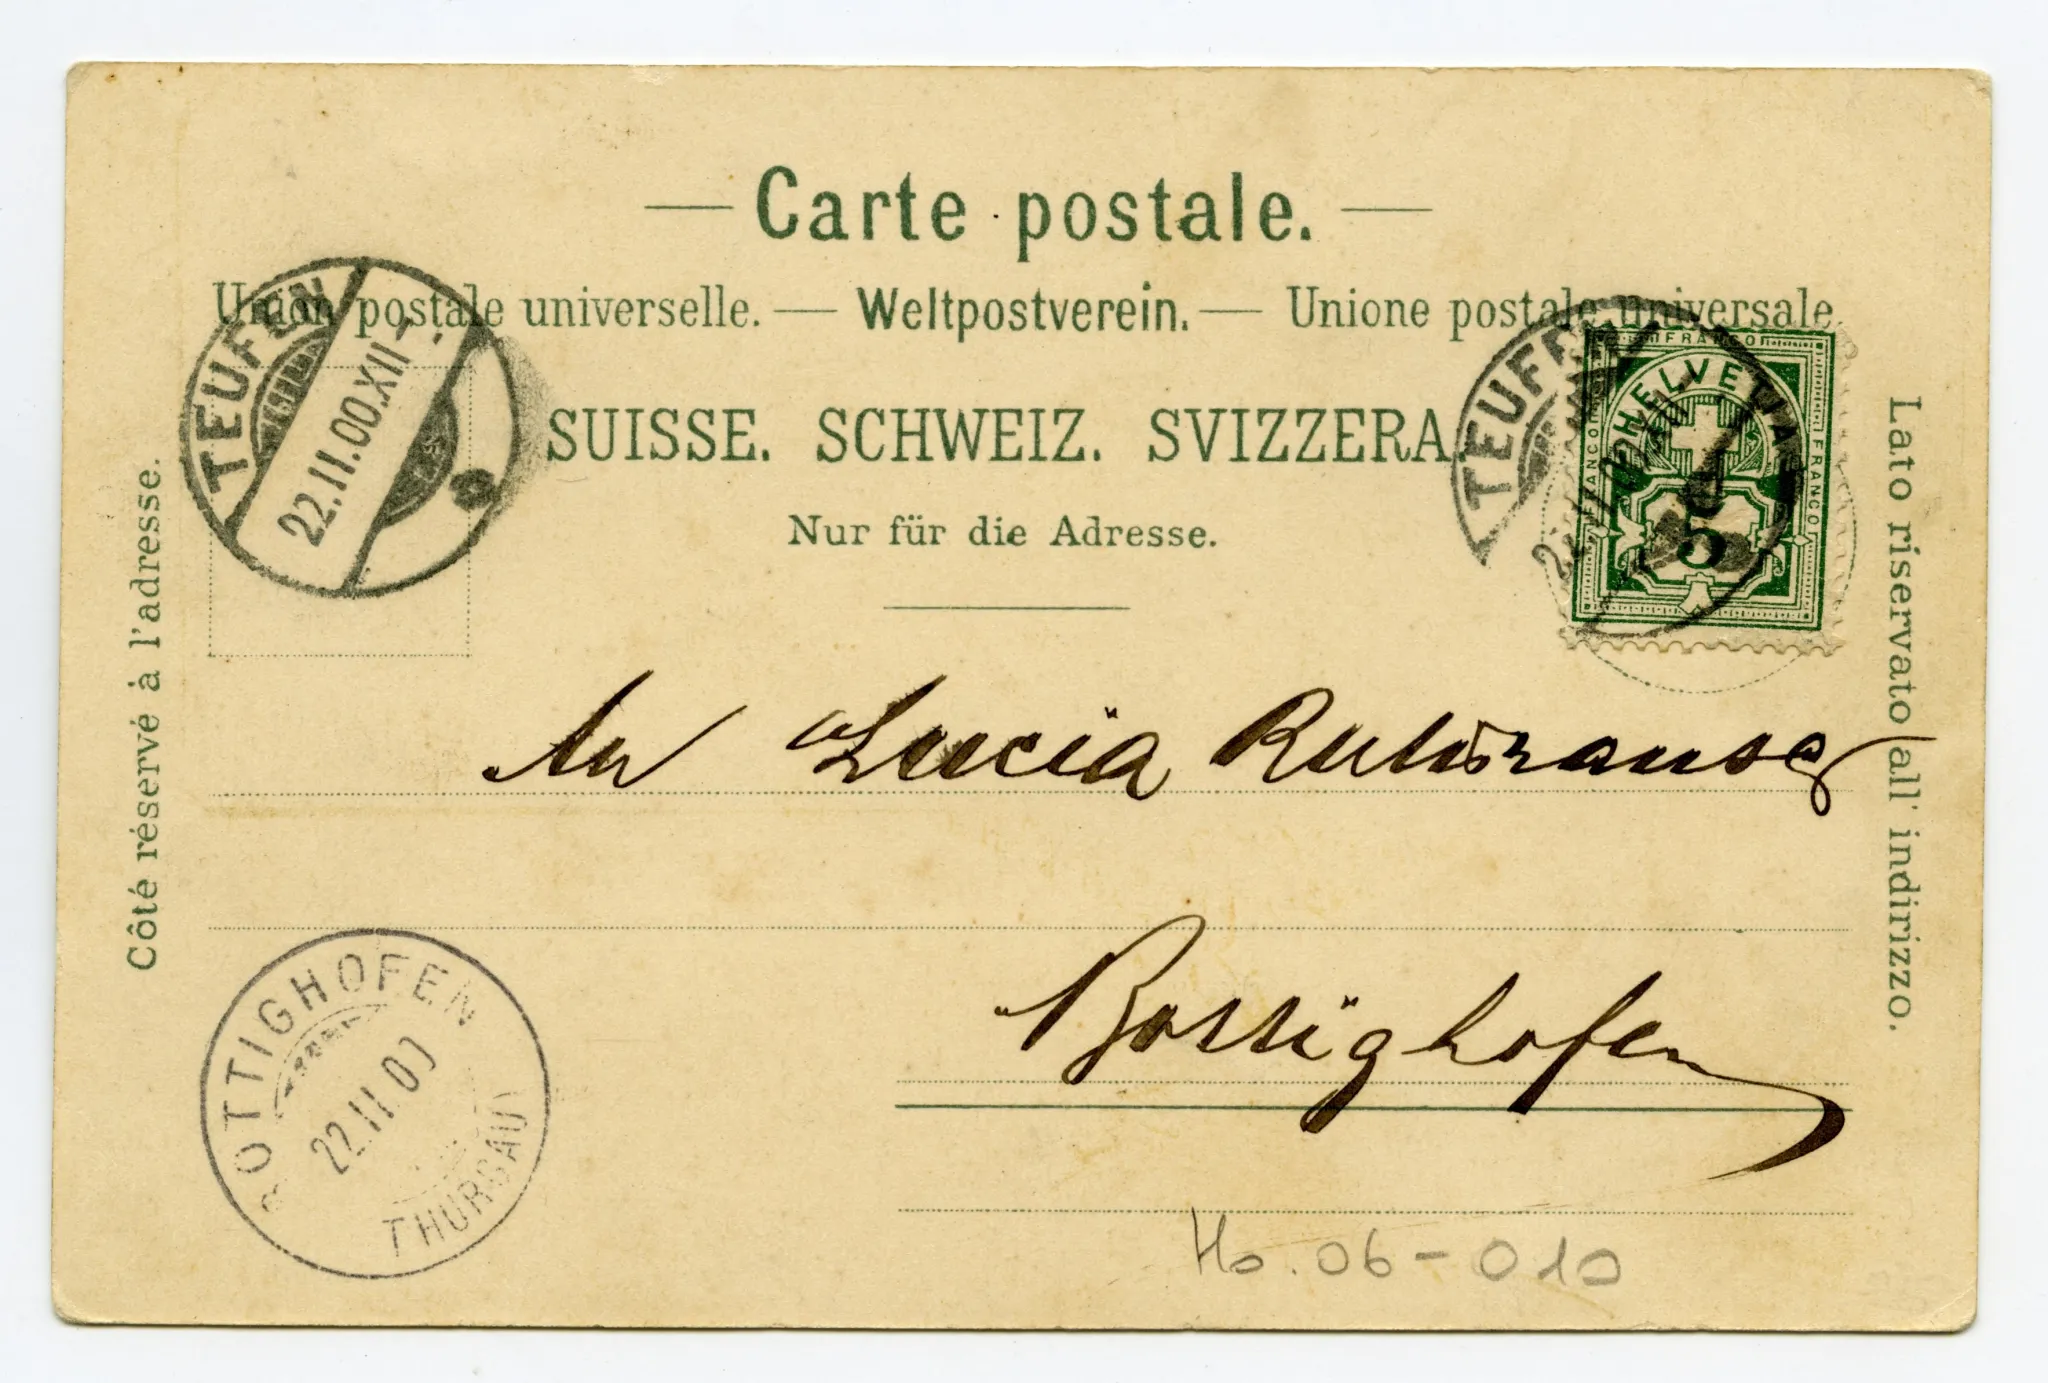 — Carte postale. —
Union postale universelle. — Weltpostverein. — Unione postale universale
SUISSE. SCHWEIZ. SVIZZERA
Nur für die Adresse.
Côté réservé à l'adresse.
Lato riservato all' indirizzo.
TEUFEN
22.II.00.XII
TEUFEN
FRANCO
FRANCO
FRANCO
HELVETIA
5
An Lucia
Bottighofen
BOTTIGHOFEN
22.II.00
THURGAU
Ho. 06-010